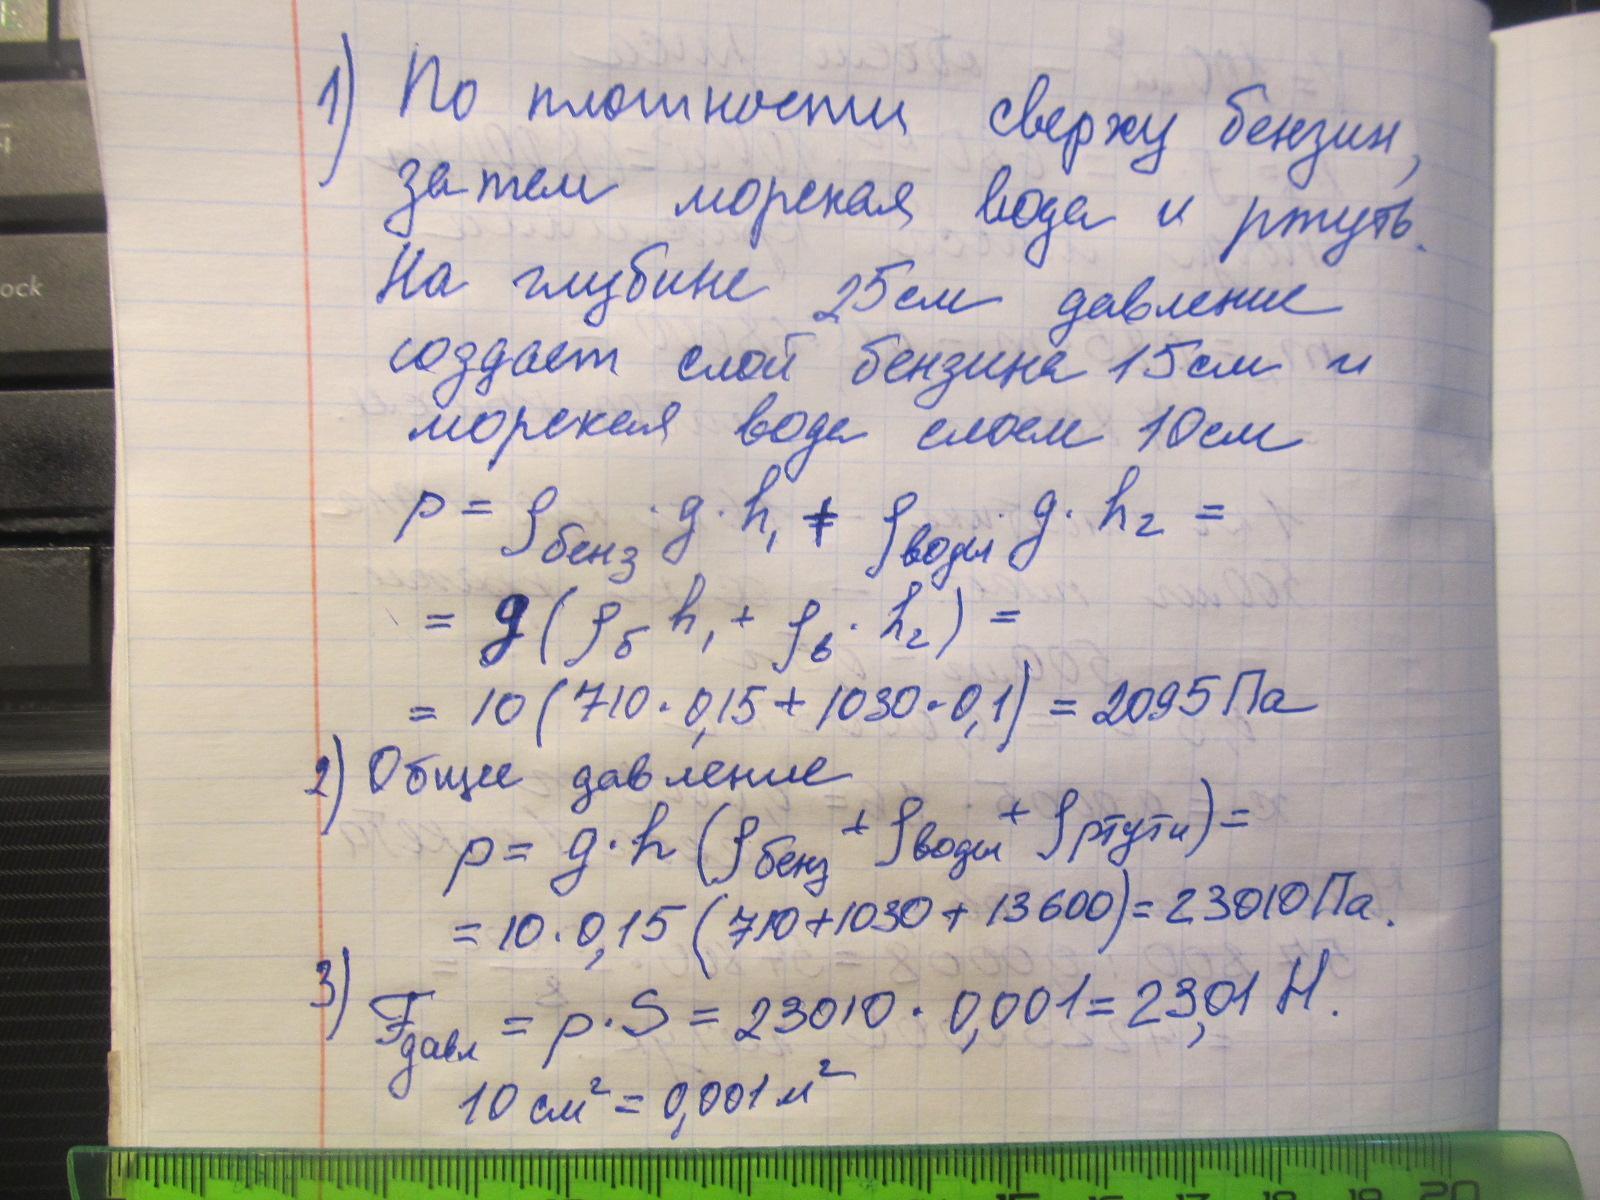 1) По плотности сверху бензин,
затем морская вода и ртуть.
На глубине 25см давление
создает слой бензина 15см и
морская вода слоем 10см
p = ρбенз · g · h₁ + ρводы · g · h₂ =
= g(ρб h₁ + ρв · h₂) =
= 10(710·0,15+1030·0,1) = 2095 Па
2) Общее давление
p = g·h (ρбенз + ρводы + ρртути) =
= 10·0,15 (710+1030+13600) = 23010 Па.
3) Fдавл = p·S = 23010 · 0,001 = 23,01 Н.
10 см² = 0,001 м²
ock
15 17 18 19 20